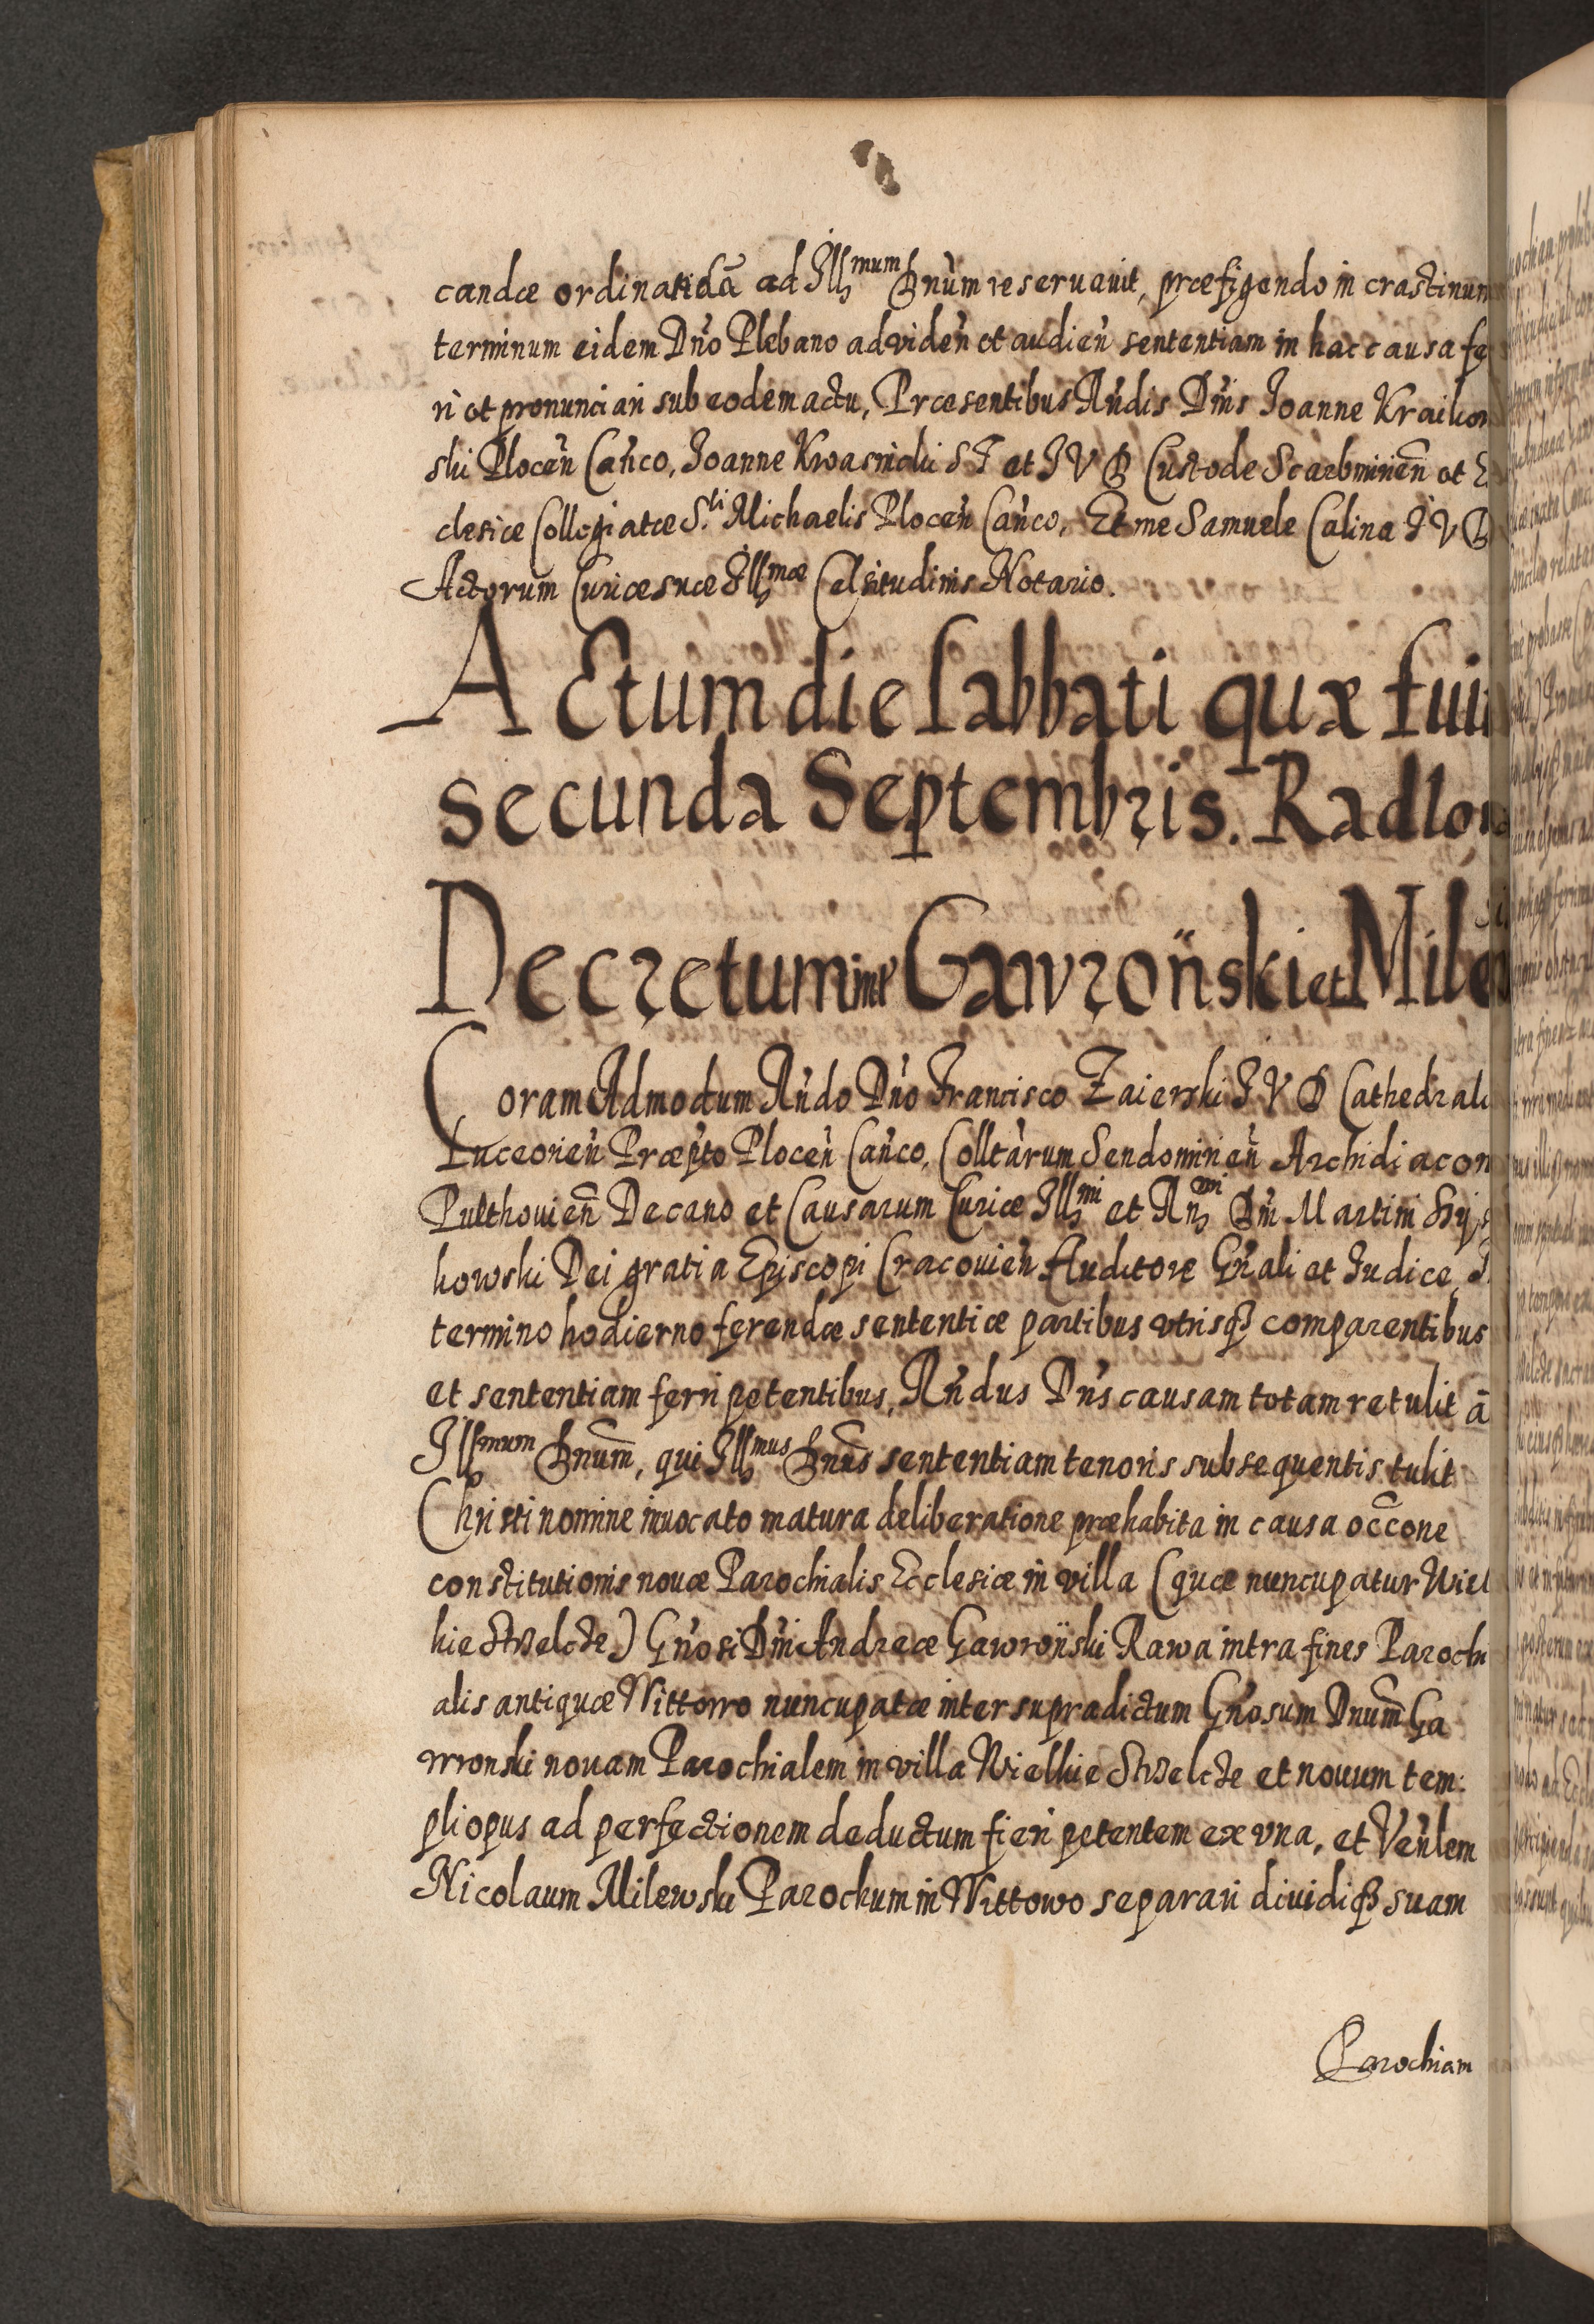 candæ ordinatidã ad Illmum Dnum reseruauit, præfigendo in crastinum
terminum eidem Dno Plebano ad viden et audien sententiam in hac causa fe
ri et pronunciari sub eodem actu, Præsentibus Rndis Dnis Joanne Kraikow
ski Plocen Canco, Joanne Kwasnicki S T et I V D Custode Scarbmirien et E
clesiæ Collegiatæ S.ti Michaelis Plocen Canco, Et me Samuele Calina I V D
Actorum Curiæ suæ Illmæ Celsitudinis Notario.
Actum die sabbati quæ fuit
secunda Septembris. Radlow
Decretum intr Gawronski et Milew
Coram Admodum Rndo Dno Francisco Zaierski I V D Cathedrali
Luceorien Præpto Plocen Canco, Colltarum Sendomirien Archidiacon
Pulthouien Decano et Causarum Curiæ Illmi et Rmi Dni Martini Szys
kowski Dei gratia Episcopi Cracouien Auditore Gnali et Iudice,
termino hodierno ferendæ sententiæ partibus vtrisq comparentibus
et sententiam ferri petentibus, Rndus Dns causam totam retulit ã
Illmum Dnum, qui Illmus Dnus sententiam tenoris subsequentis tulit
Christi nomine inuocato matura deliberatione præhabita in causa occone
constitutionis nouæ Parochialis Ecclesiæ in villa (quæ nuncupatur Wiel
kie Strzelcze) Gnosi Dni Andreæ Gawronski Rawa intra fines Parochi
alis antiquæ Wittowo nuncupatæ inter supradictum Gnosum Dnum Ga
wronski nouam Parochialem in villa Wielkie Strzelcze et nouum tem:
pli opus ad perfectionem deductum fieri petentem ex vna, et Venlem
Nicolaum Milewski Parochum in Wittowo separari diuidiq suam
Parochiam